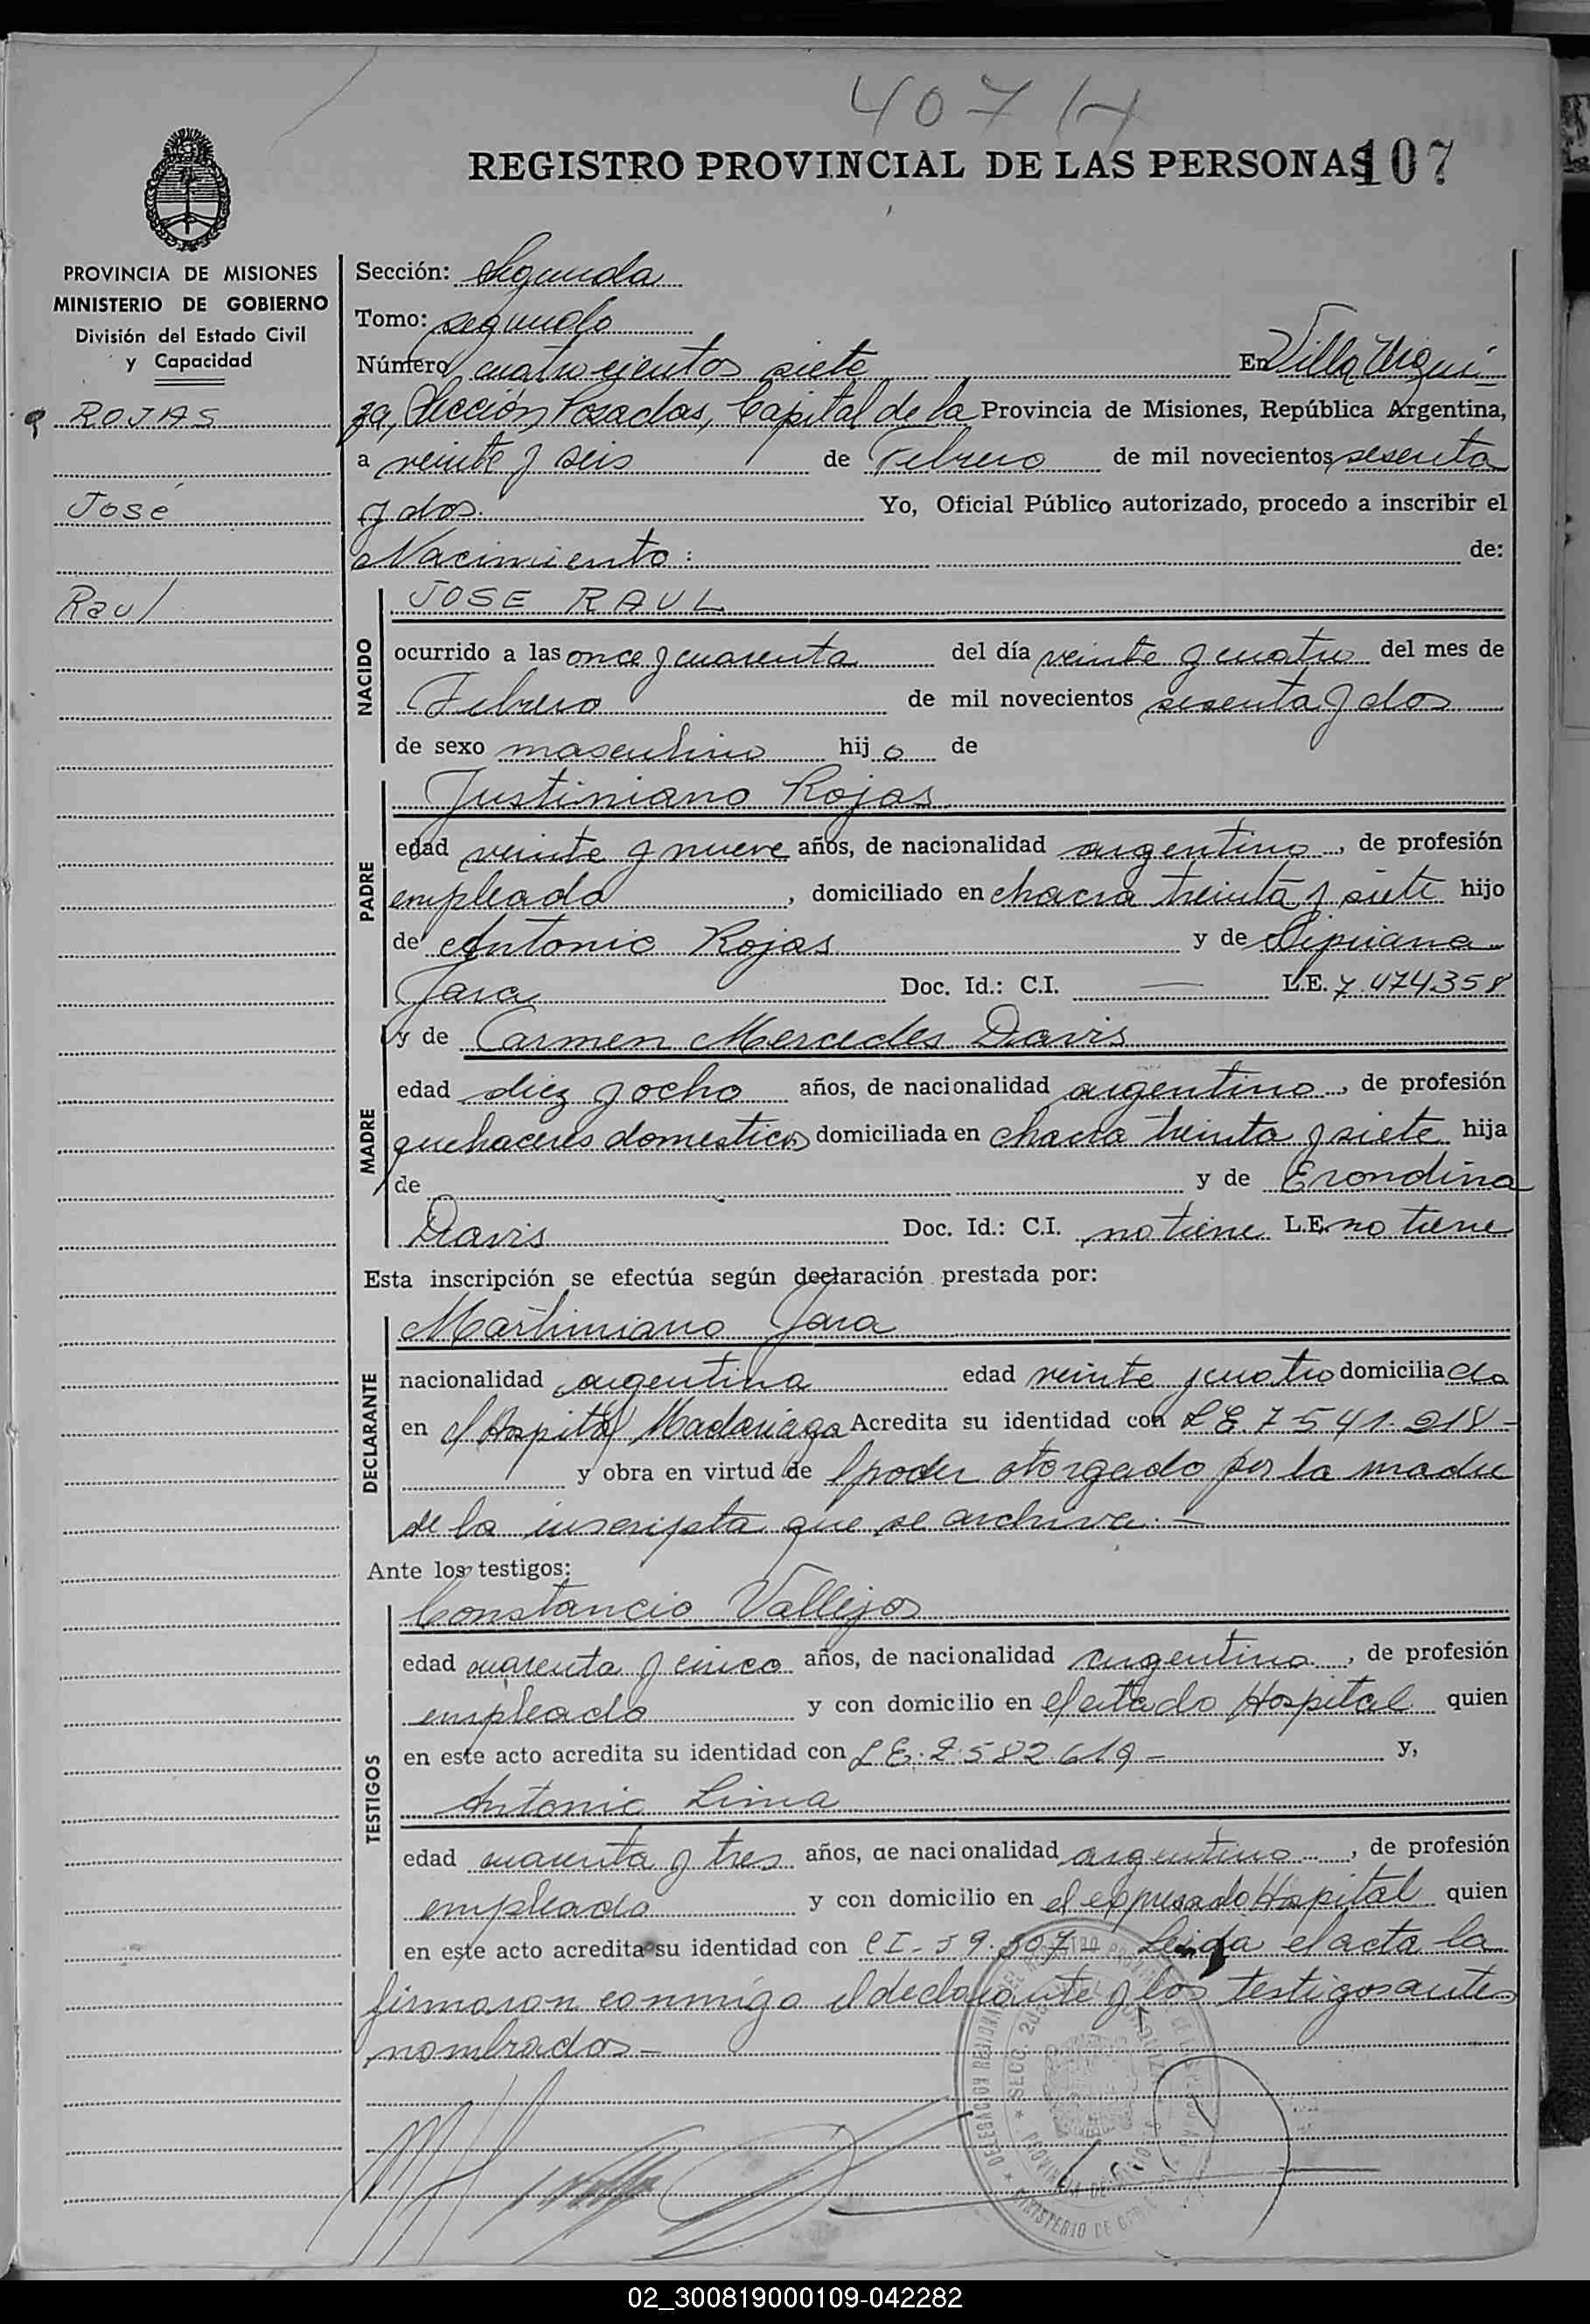 407 H
REGISTRO PROVINCIAL DE LAS PERSONAS 107
PROVINCIA DE MISIONES
MINISTERIO DE GOBIERNO
División del Estado Civil
y Capacidad
ROJAS
José
Raul
Sección: Segunda
Tomo: segundo
Número cuatrocientos siete En Villa Urqui-
za, Sección Posadas, Capital de la Provincia de Misiones, República Argentina,
a veinte y seis de Febrero de mil novecientos sesenta
y dos. Yo, Oficial Público autorizado, procedo a inscribir el
Nacimiento: de:
NACIDO
JOSE RAUL
ocurrido a las once y cuarenta del día veinte y cuatro del mes de
Febrero de mil novecientos sesenta y dos
de sexo masculino hijo de
PADRE
Justiniano Rojas
edad veinte y nueve años, de nacionalidad argentino, de profesión
empleado, domiciliado en chacra treinta y siete hijo
de Antonio Rojas y de Cipriana
Jara Doc. Id.: C.I. — L.E. 7.474.358
MADRE
y de Carmen Mercedes Davis
edad diez y ocho años, de nacionalidad argentina, de profesión
quehaceres domesticos domiciliada en chacra treinta y siete hija
de y de Erondina
Davis Doc. Id.: C.I. no tiene L.E. no tiene
Esta inscripción se efectúa según declaración prestada por:
DECLARANTE
Martiniano Jara
nacionalidad argentina edad veinte y cuatro domiciliado
en el Hospital Madariaga Acredita su identidad con L E. 7 541.218-
y obra en virtud de l poder otorgado por la madre
de la inscripta que se archiva.-
Ante los testigos:
TESTIGOS
Constancio Vallejos
edad cuarenta y cinco años, de nacionalidad argentina, de profesión
empleado y con domicilio en el citado Hospital quien
en este acto acredita su identidad con L E: 2.582.619- y,
Antonio Lima
edad cuarenta y tres años, de nacionalidad argentino, de profesión
empleado y con domicilio en el expresado Hospital quien
en este acto acredita su identidad con CI-59.507- Leida el acta la
firmaron conmigo el declarante y los testigos antes
nombrados-
02_300819000109-042282